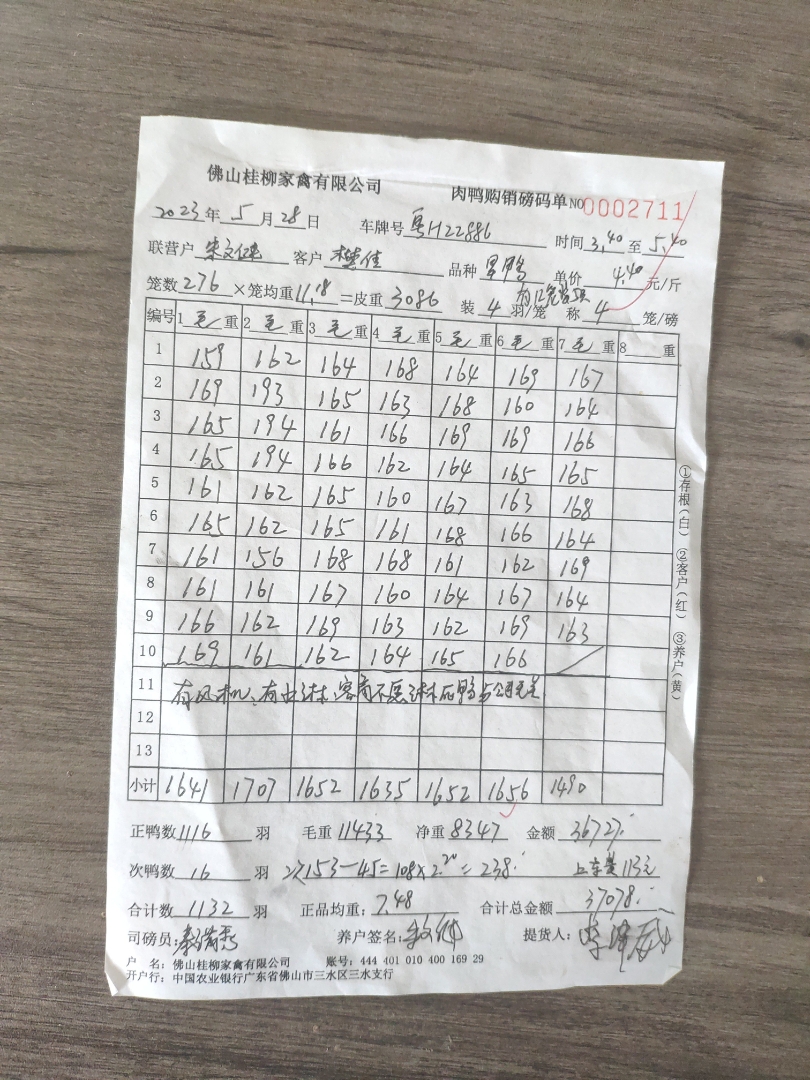 佛山桂柳家禽有限公司 肉鸭购销磅码单 NO 0002711
2023年 5 月 28 日 车牌号 粤H22886 时间 3.40 至 5.40
联营户 客户 樊佳 品种 单价 4.40 元/斤
笼数 276 ×笼均重 11.18 =皮重 3086 装 4 羽/笼 称 4 笼/磅
编号 1 毛 重 2 毛 重 3 毛 重 4 毛 重 5 毛 重 6 毛 重 7 毛 重 8 重
1 159 162 164 168 164 169 167
2 169 193 165 163 168 160 164
3 165 194 161 166 169 169 166
4 165 194 166 162 164 165 165
5 161 162 165 160 167 163 168
6 165 162 165 161 168 166 164
7 161 156 168 168 161 162 169
8 161 161 167 160 164 167 164
9 166 162 169 163 162 169 163
10 169 161 162 164 165 166
11 有风机、有
12
13
小计 1641 1707 1652 1635 1652 1656 1490
正鸭数 1116 羽 毛重 11433 净重 8347 金额 36727.
次鸭数 16 羽 次153-45=108×2.20=238. 上车 113元
合计数 1132 羽 正品均重: 7.48 合计总金额 37078.
司磅员: 养户签名: 提货人:
户 名: 佛山桂柳家禽有限公司 账号: 444 401 010 400 169 29
开户行: 中国农业银行广东省佛山市三水区三水支行
①存根(白) ②客户(红) ③养户(黄)